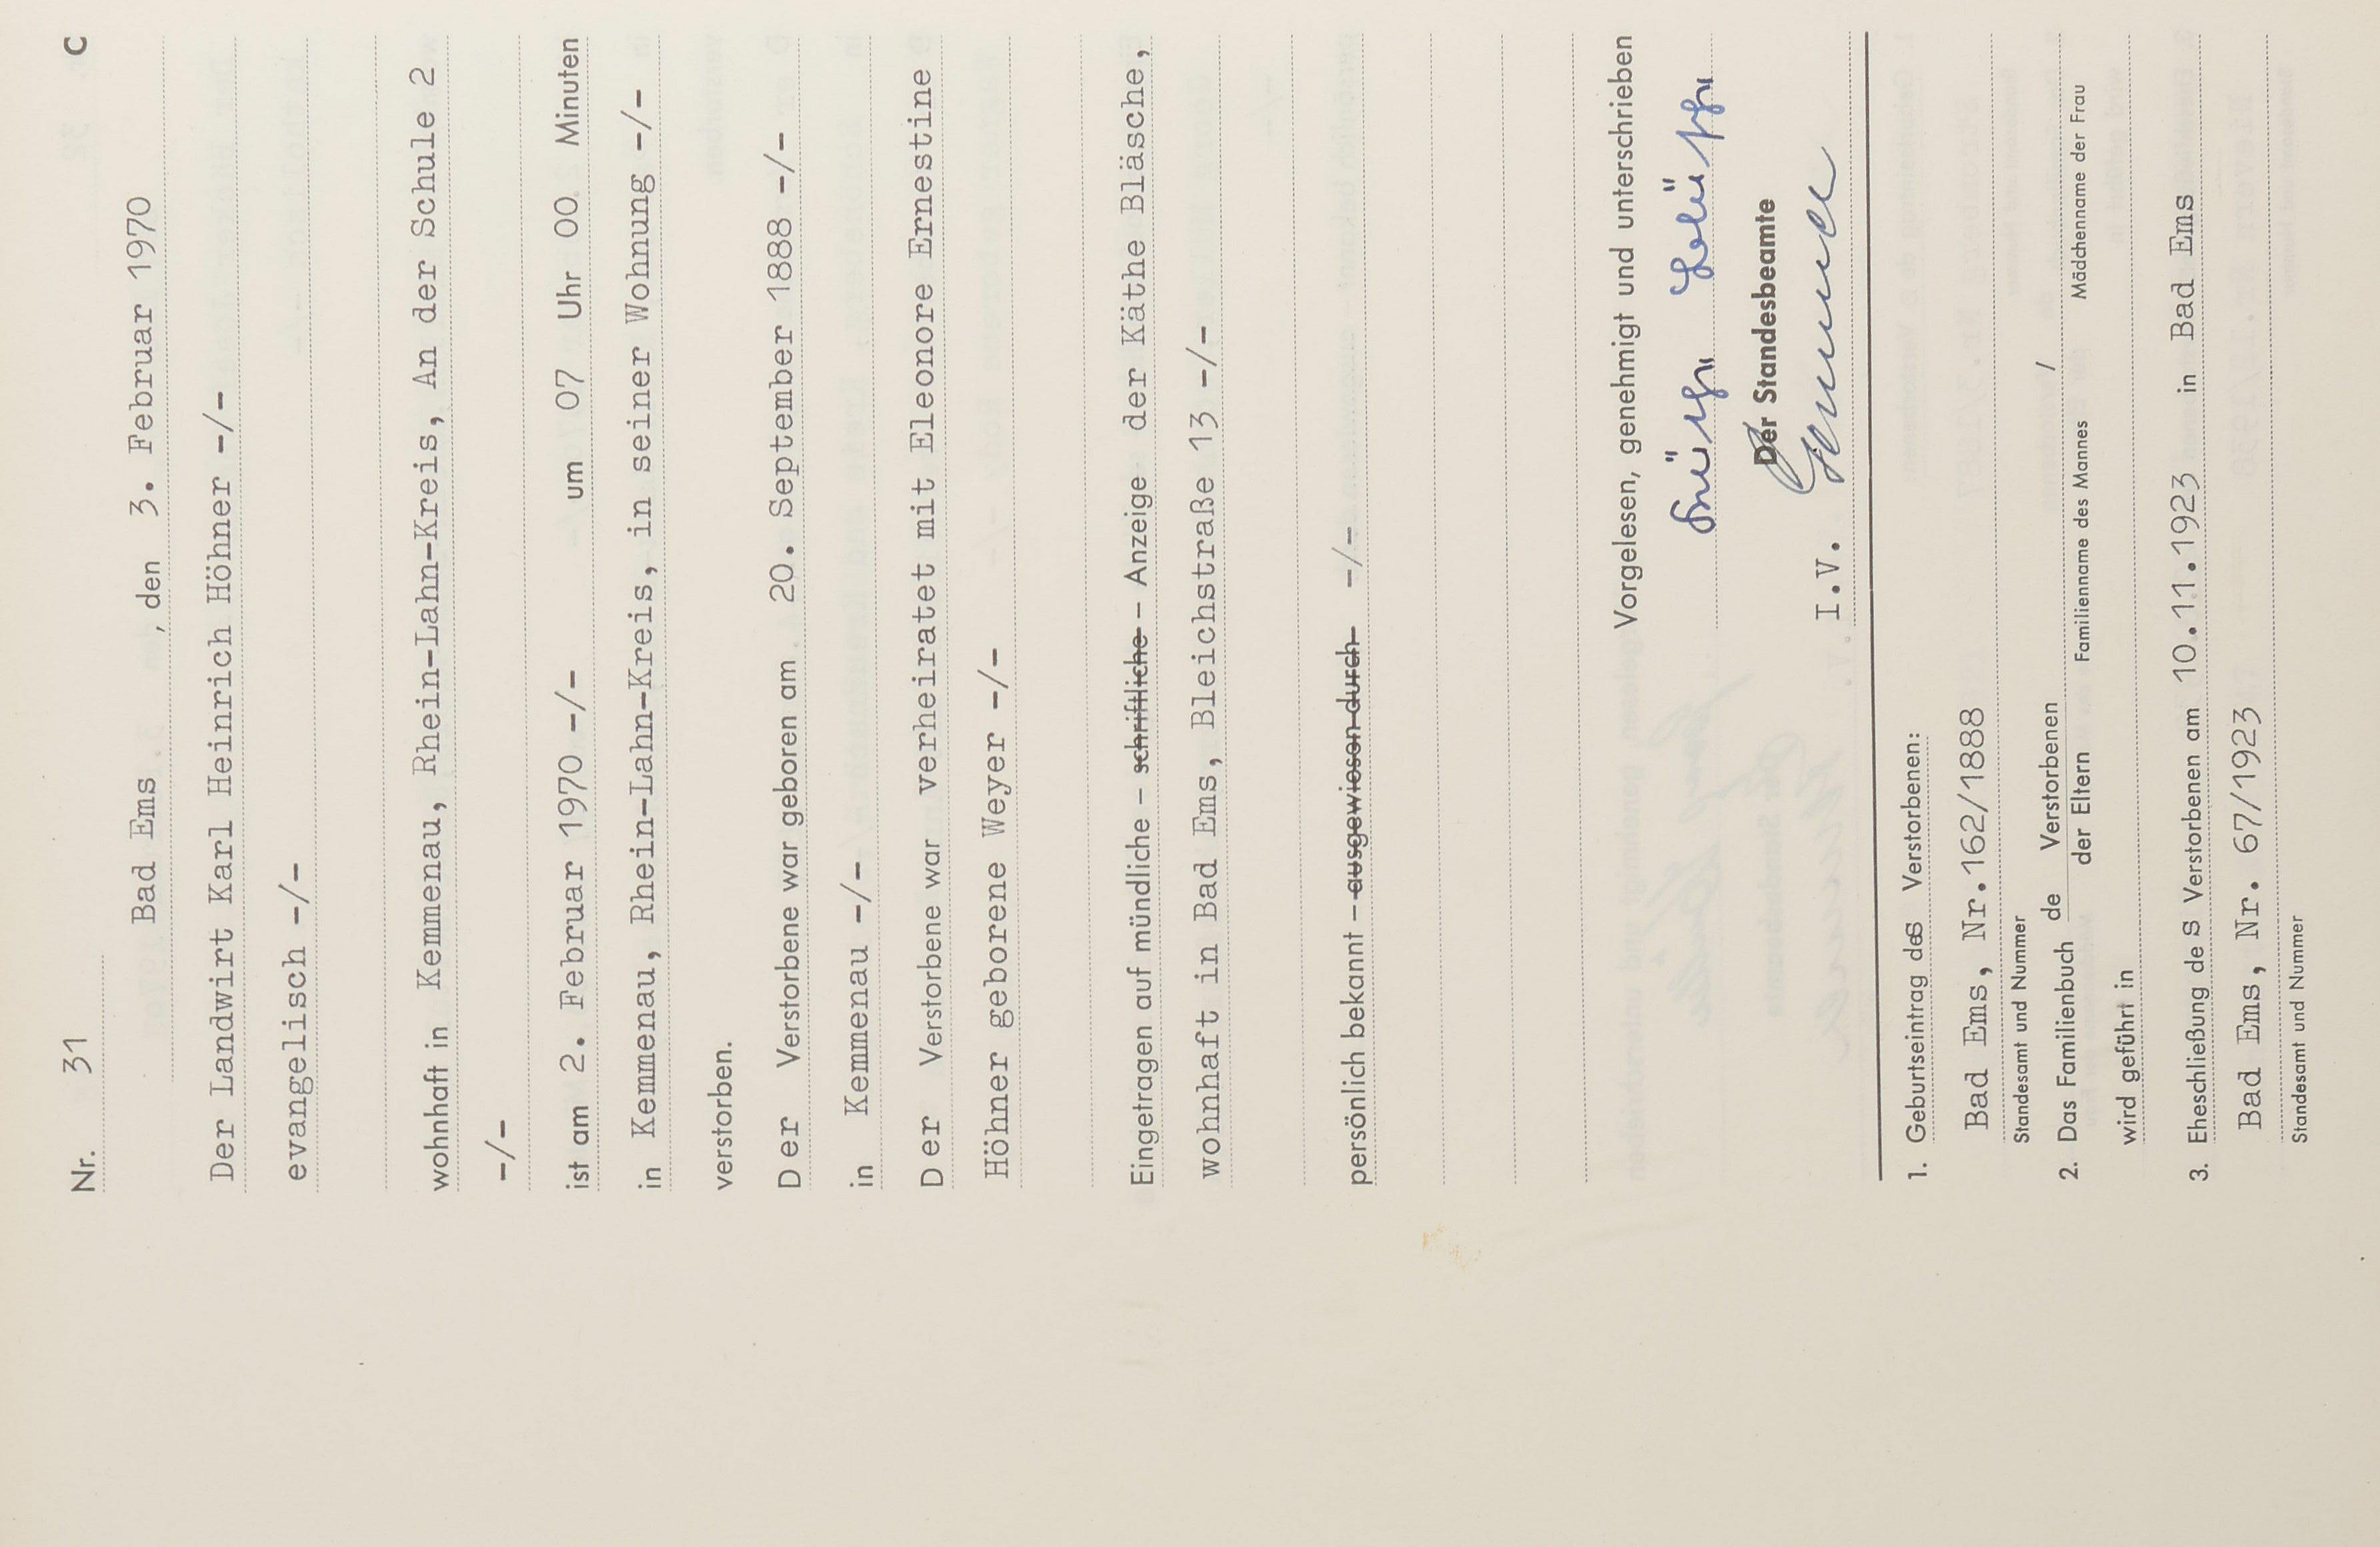 Nr. 31 C
Bad Ems, den 3. Februar 1970
Der Landwirt Karl Heinrich Höhner -/-
evangelisch -/-
wohnhaft in Kemmenau, Rhein-Lahn-Kreis, An der Schule 2
-/-
ist am 2. Februar 1970 -/- um 07 Uhr 00 Minuten
in Kemmenau, Rhein-Lahn-Kreis, in seiner Wohnung -/-
verstorben.
Der Verstorbene war geboren am 20. September 1888 -/-
in Kemmenau -/-
Der Verstorbene war verheiratet mit Eleonore Ernestine
Höhner geborene Weyer -/-
Eingetragen auf mündliche - schriftliche - Anzeige der Käthe Bläsche,
wohnhaft in Bad Ems, Bleichstraße 13 -/-
persönlich bekannt - ausgewiesen durch -/-
Vorgelesen, genehmigt und unterschrieben
Der Standesbeamte
I.V.
1. Geburtseintrag des Verstorbenen:
Bad Ems, Nr.162/1888
Standesamt und Nummer
2. Das Familienbuch de Verstorbenen /
der Eltern Familienname des Mannes Mädchenname der Frau
wird geführt in
3. Eheschließung des Verstorbenen am 10.11.1923 in Bad Ems
Bad Ems, Nr. 67/1923
Standesamt und Nummer